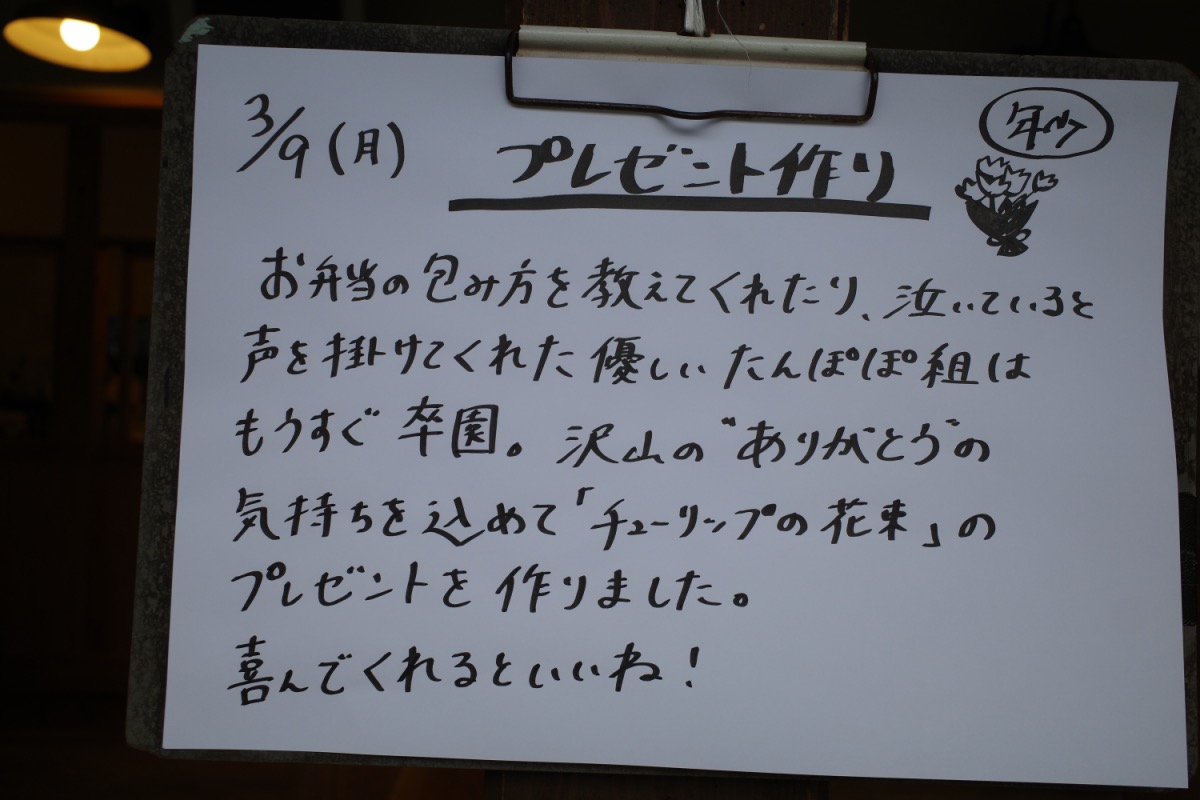 3/9(月)
プレゼント作り
年少
お弁当の包み方を教えてくれたり、泣いていると
声を掛けてくれた優しいたんぽぽ組は
もうすぐ卒園。沢山の"ありがとう"の
気持ちを込めて「チューリップの花束」の
プレゼントを作りました。
喜んでくれるといいね!